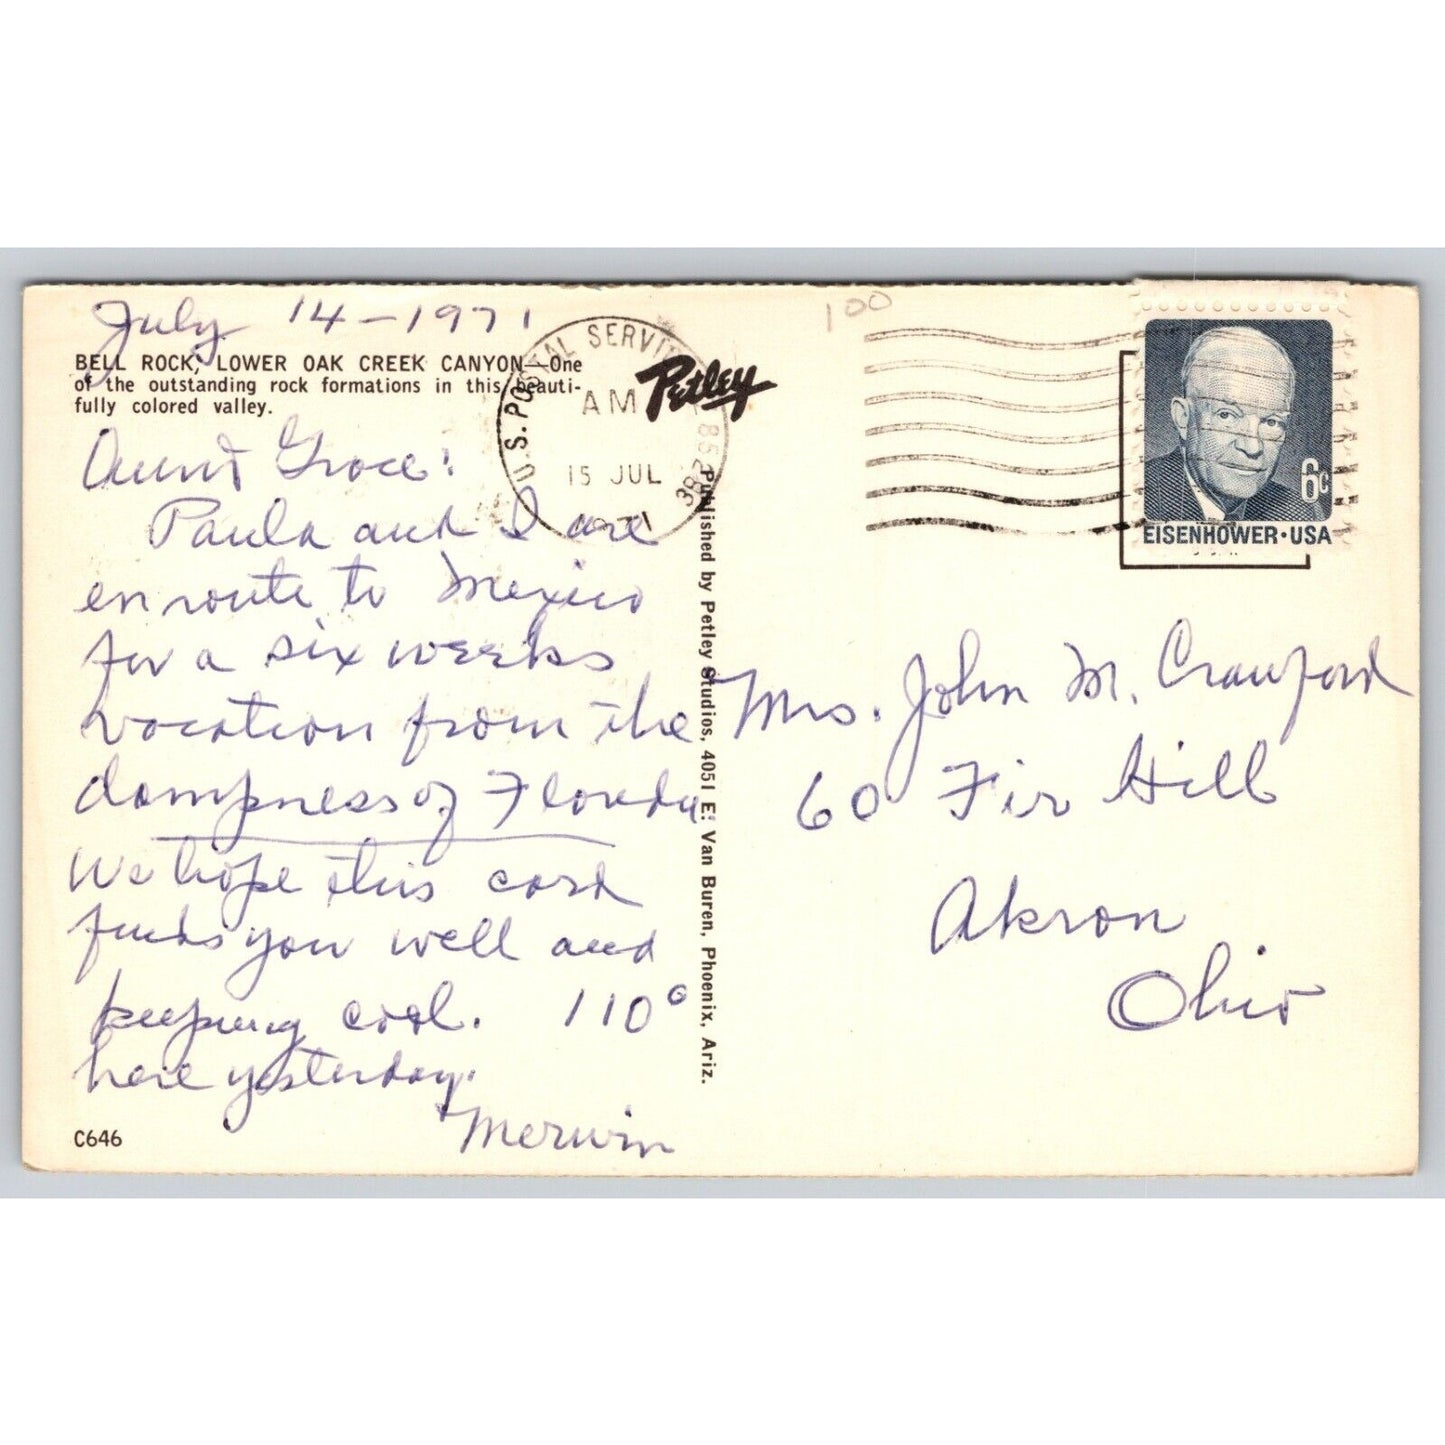 July 14-1971
BELL ROCK, LOWER OAK CREEK CANYON—One
of the outstanding rock formations in this beauti-
fully colored valley.
Aunt Grace:
Paula and I are
en route to Mexico
for a six weeks
vacation from the
dampness of Florida
We hope this card
finds you well and
keeping cool. 110°
here yesterday.
Merwin
C646
U.S. POSTAL SERVICE
AM
15 JUL
1971
Petley
Published by Petley Studios, 4051 E. Van Buren, Phoenix, Ariz.
100
6c
EISENHOWER·USA
Mrs. John M. Crawford
60 Fir Hill
Akron
Ohio